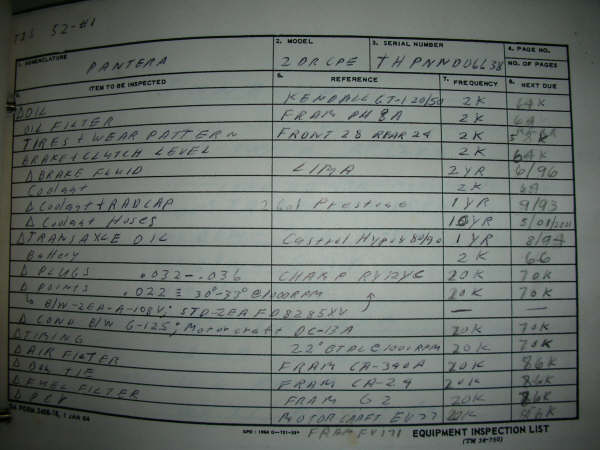 TIS 52-#1
1. NOMENCLATURE PANTERA 2. MODEL 2 DR CPE 3. SERIAL NUMBER THPNND06638 4. PAGE NO.
NO. OF PAGES
5. ITEM TO BE INSPECTED 6. REFERENCE 7. FREQUENCY 8. NEXT DUE
Δ OIL KENDALL GT-1 20/50 2K 64K
OIL FILTER FRAM PH 8A 2K 64
TIRES + WEAR PATTERN FRONT 28 REAR 24 2K
BRAKE + CLUTCH LEVEL 2K 64K
Δ BRAKE FLUID LIMA 2 YR 6/96
Coolant 2K
Δ Coolant + RADCAP Prestone 1 YR 9/93
Δ Coolant Hoses 10 YR 5/01/2011
Δ TRANSAXLE OIL Castrol Hypoy 80/90 1 YR 8/94
Battery 2K 66
Δ PLUGS .032-.036 CHAMP RV12YC 20K 70K
Δ POINTS .022 = 30°-33° @ 1000 RPM 20K 70K
↳ B/W-ZEA-A-108V; STD-ZEA FD8285XV — —
Δ COND B/W G-125; Motorcraft DC-13A 20K 70K
Δ TIMING 22° BTDC @ 1000 RPM 20K 70K
Δ AIR FILTER FRAM CA-340A 20K 86K
FRAM CA-24 20K 86K
Δ FUEL FILTER FRAM G2 20K 86K
Δ PCV MOTORCRAFT EV 20K 86K
DA FORM 2408-18, 1 JAN 64 FRAM FV171 EQUIPMENT INSPECTION LIST
(TM 38-750)